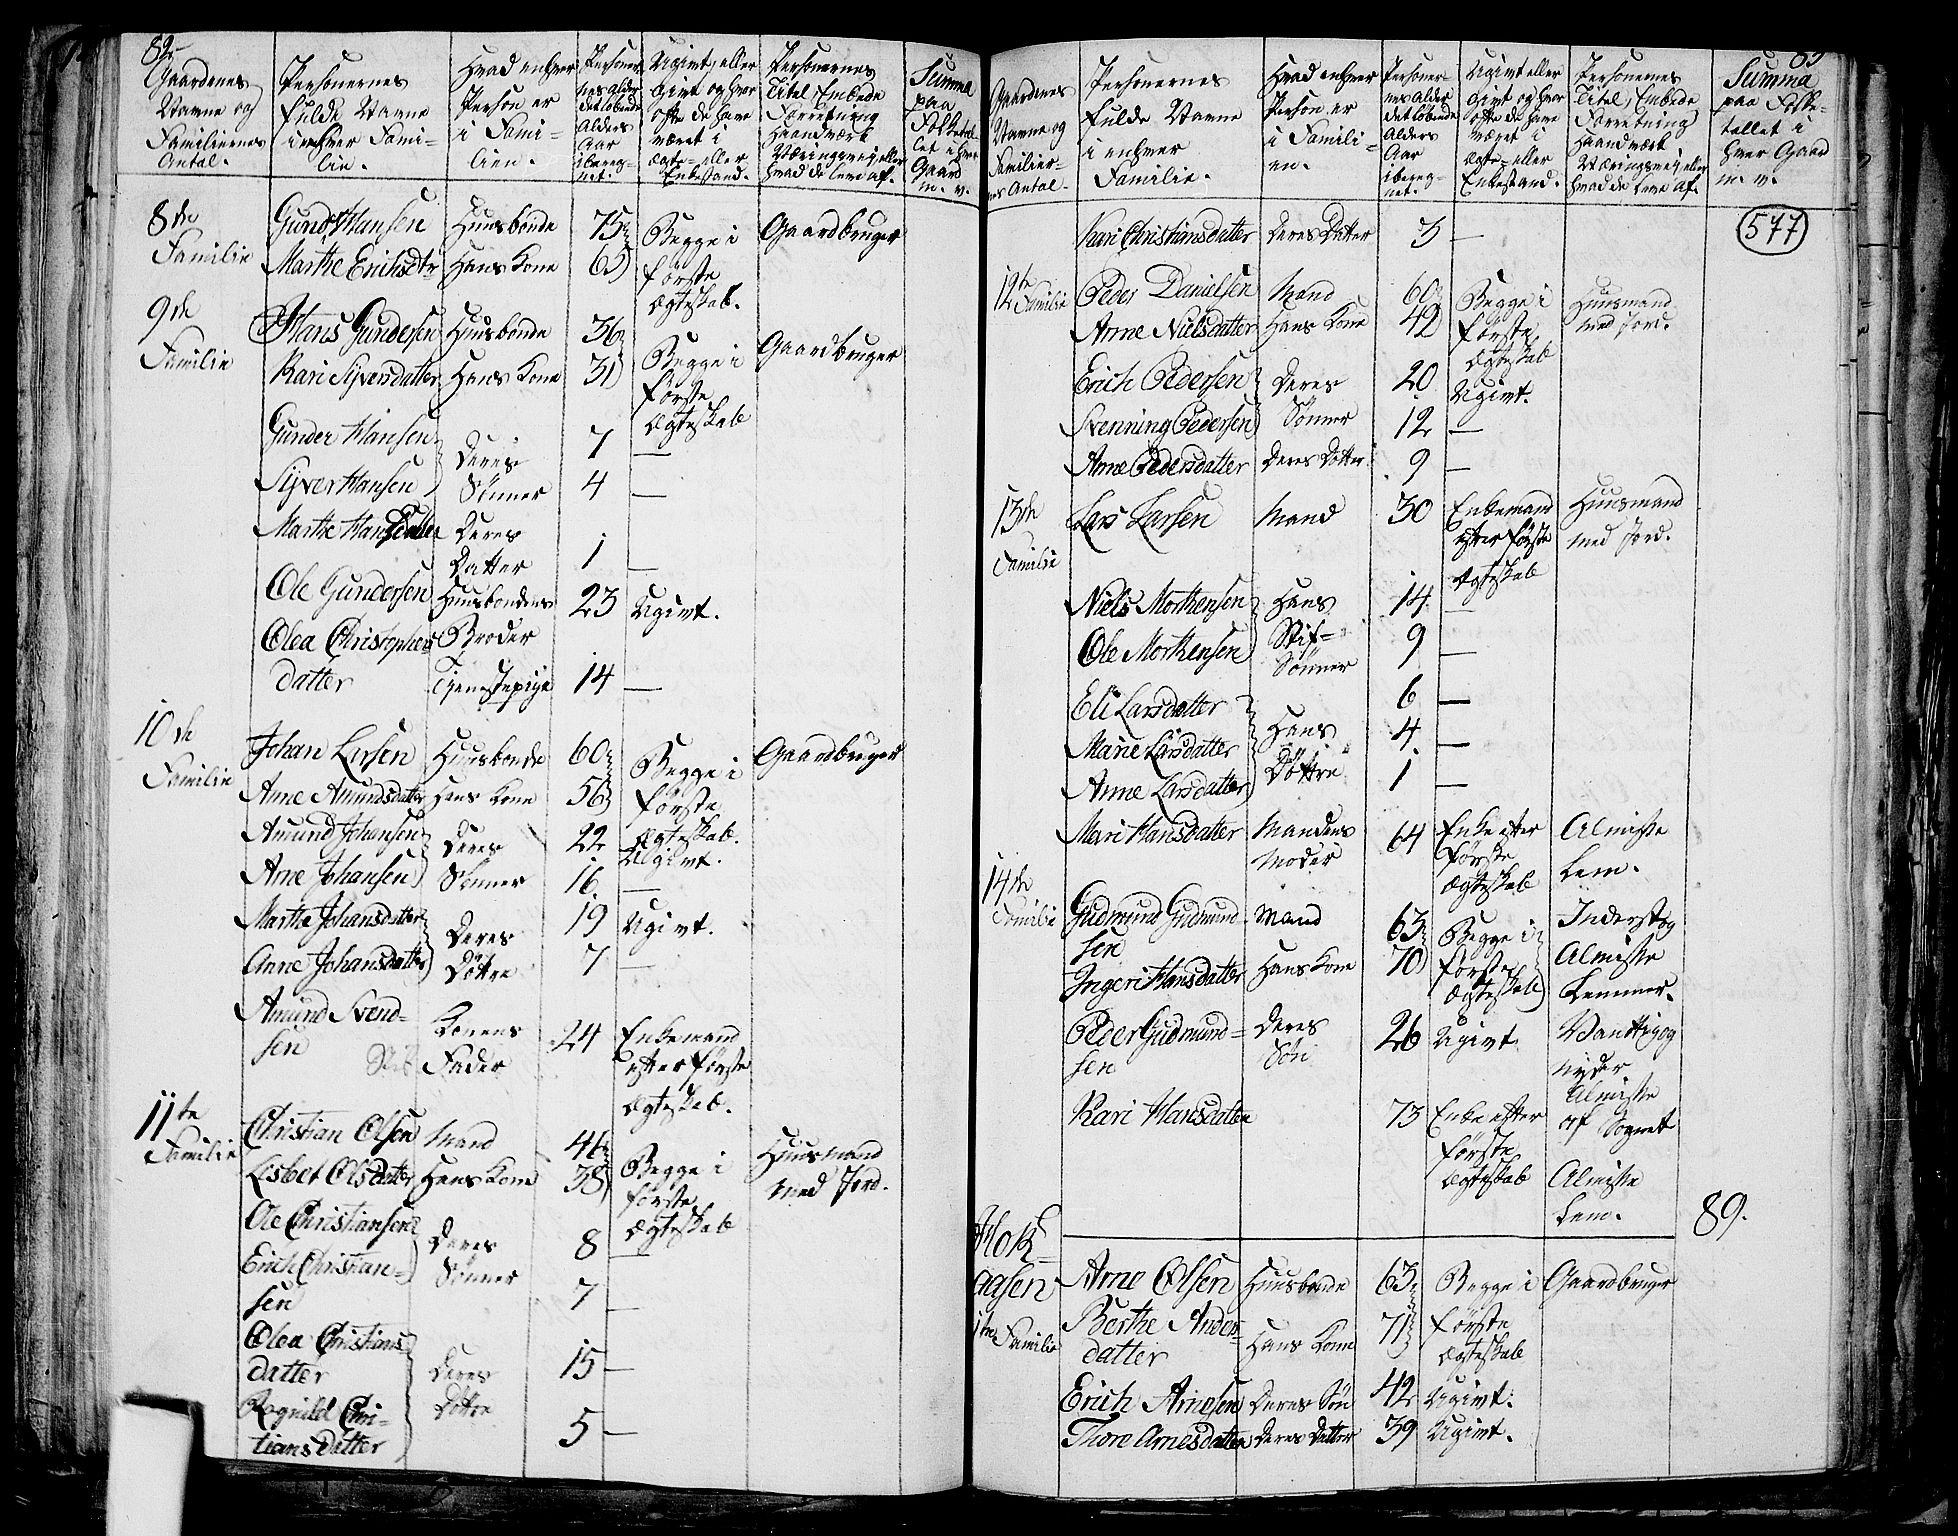 82
Gaardenes Navne og Familiernes Antal.
Personernes fulde Navne i enhver Familie.
Hvad enhver Person er i Familien.
Personernes Alder det løbende Alders Aar iberegnet.
Ugivt, eller Givt og hvor ofte de have været i Ægte- eller Enkestand.
Personernes Titel, Embede Forretning Haandværk Næringsvej eller hvad de leve af.
Summa paa Folketallet i hver Gaard m. v.
8de Familie
Gund Hansen Huusbonde 75 Begge i første Ægteskab. Gaardbruger
Marthe Erichsdtr Hans Kone 65
9de Familie
Hans Gundersen Huusbonde 36 Begge i første Ægteskab Gaardbruger
Kari Syversdatter Hans Kone 31
Gunder Hansen Deres Sønner 7 —
Syver Hansen 4 —
Marthe Hansdatter Deres Datter 1 —
Ole Gundersen Huusbondens Broder 23 Ugivt.
Olea Christophersdatter Tjenestepige 14 —
10de Familie
Johan Larsen Huusbonde 60 Begge i første Ægteskab. Gaardbruger
Anne Amundsdatter Hans Kone 56
Amund Johansen Deres Sønner 22 Ugivt.
Arne Johansen 16 —
Marthe Johansdatter Deres Døttre 19 Ugivt.
Anne Johansdatter 7 —
Amund Svendsen Konens Fader 24 Enkemand efter første Ægteskab.
11te Familie
Christian Olsen Mand 41 Begge i første Ægteskab Huusmand med Jord.
Lisbet Olsdatter Hans Kone 38
Ole Christiansen Deres Sønner 8 —
Erich Christiansen 7 —
Olea Christiansdatter Deres Døttre 15 —
Ragnild Christiansdatter 5 —
83
Gaardenes Navne og Familiernes Antal.
Personernes fulde Navne i enhver Familie.
Hvad enhver Person er i Familien.
Personernes Alder det løbende Alders Aar iberegnet.
Ugivt eller Givt og hvor ofte de have været i Ægte- eller Enkestand.
Personernes Titel, Embede Forretning Haandværk Næringsvej eller hvad de leve af.
Summa paa Folketallet i hver Gaard m. v.
577
Kari Christiansdatter Deres Datter 3 —
12te Familie
Peder Danielsen Mand 60 Begge i første Ægteskab Huusmand med Jord.
Anne Nielsdatter Hans Kone 42
Erich Pedersen Deres Sønner 20 Ugivt.
Svenning Pedersen 12 —
Anne Pedersdatter Deres Dotter 9 —
13de Familie
Lars Larsen Mand 30 Enkemand efter første Ægteskab Huusmand med Jord.
Niels Morthensen Hans Stif-Sønner 14 —
Ole Morthensen 9 —
Eli Larsdatter Hans Døttre 6 —
Marie Larsdatter 4 —
Anne Larsdatter 1 —
Mari Hansdatter Mandens Moder 64 Enke efter første Ægteskab Almisse Lem.
14de Familie
Gudmund Gudmundsen Mand 63 Begge i første Ægteskab Inderst og Almisse Lemmer.
Ingeri Hansdatter Hans Kone 70
Peder Gudmundsen Deres Søn 26 Ugivt Vanttig og nyder Almisse af Sognet
Kari Hansdatter 73 Enke efter første Ægteskab Almisse Lem.
89.
Hokaasen
1te Familie
Arne Olsen Huusbonde 63 Begge i første Ægteskab Gaardbruger
Berthe Andersdatter Hans Kone 71
Erich Arnesen Deres Søn 42 Ugivt.
Thore Arnesdatter Deres Datter 39 Ugivt.